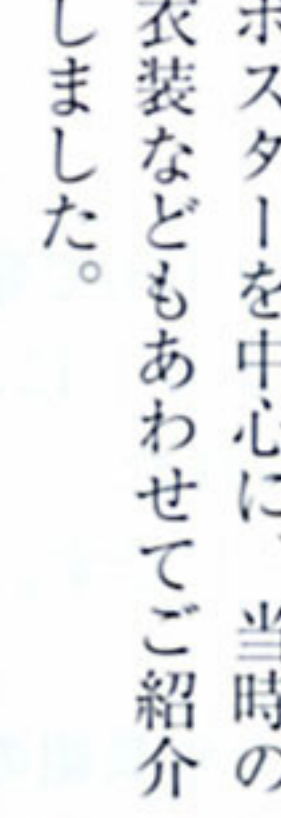 ポスターを中心に、当時の
衣装などもあわせてご紹介
しました。